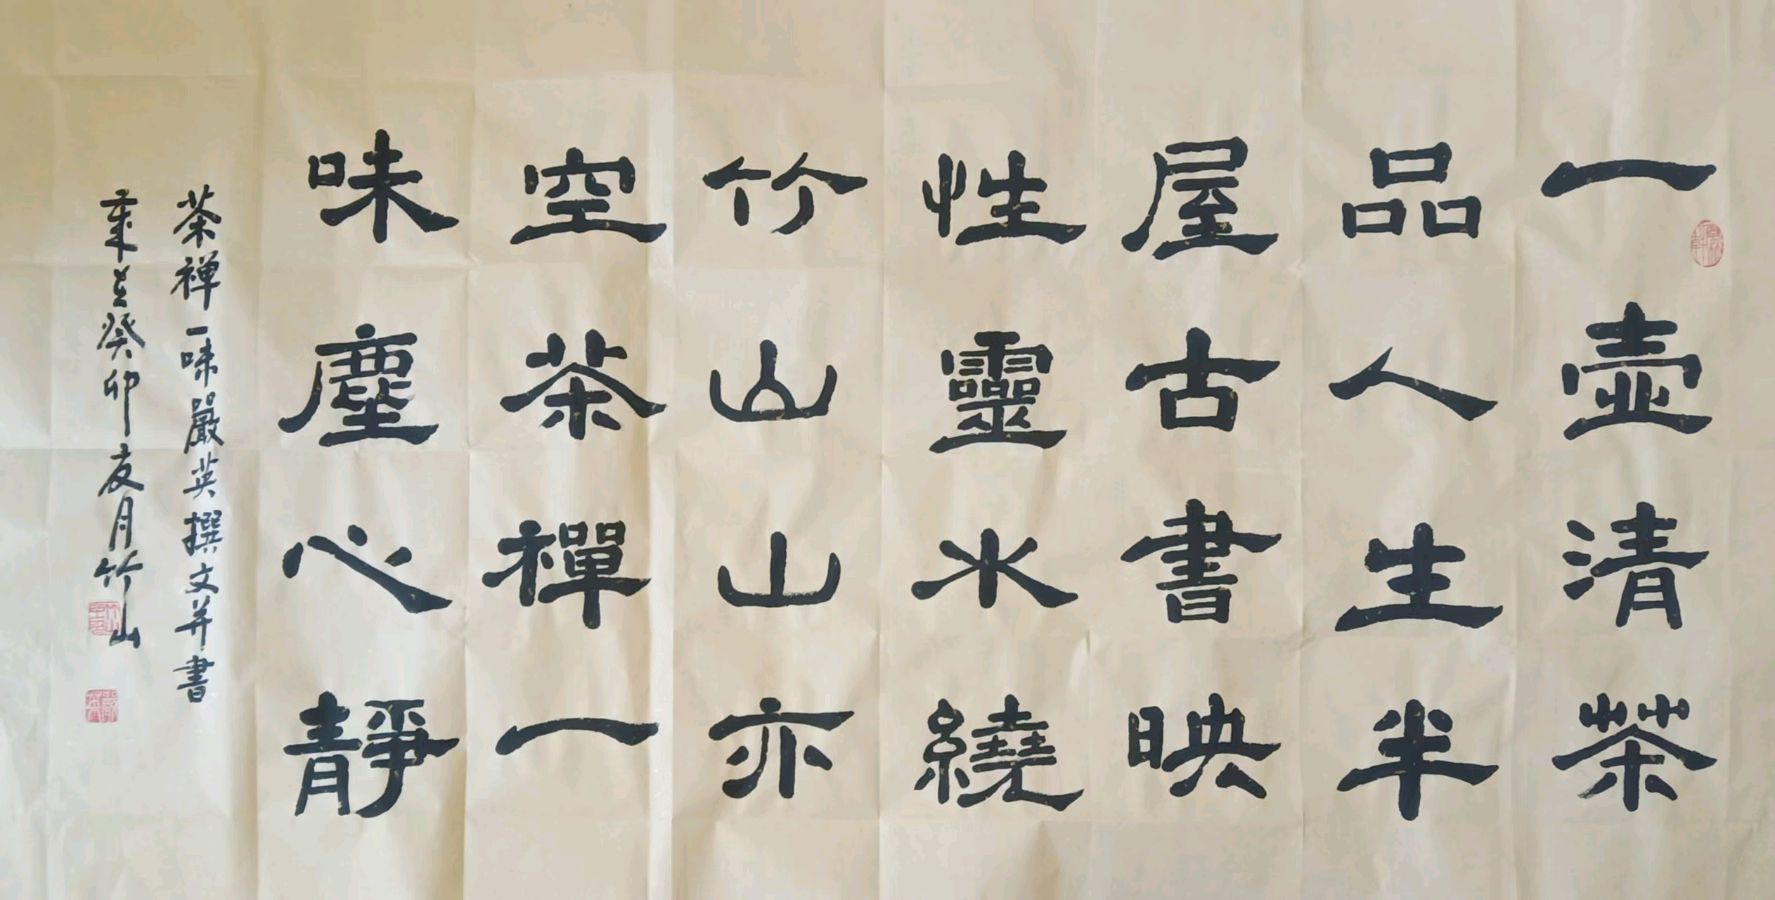 一壺清茶
品人生半
屋古書映
性靈水繞
竹山山亦
空茶禪一
味塵心靜
茶禅一味嚴英撰文并書
癸卯友月竹山